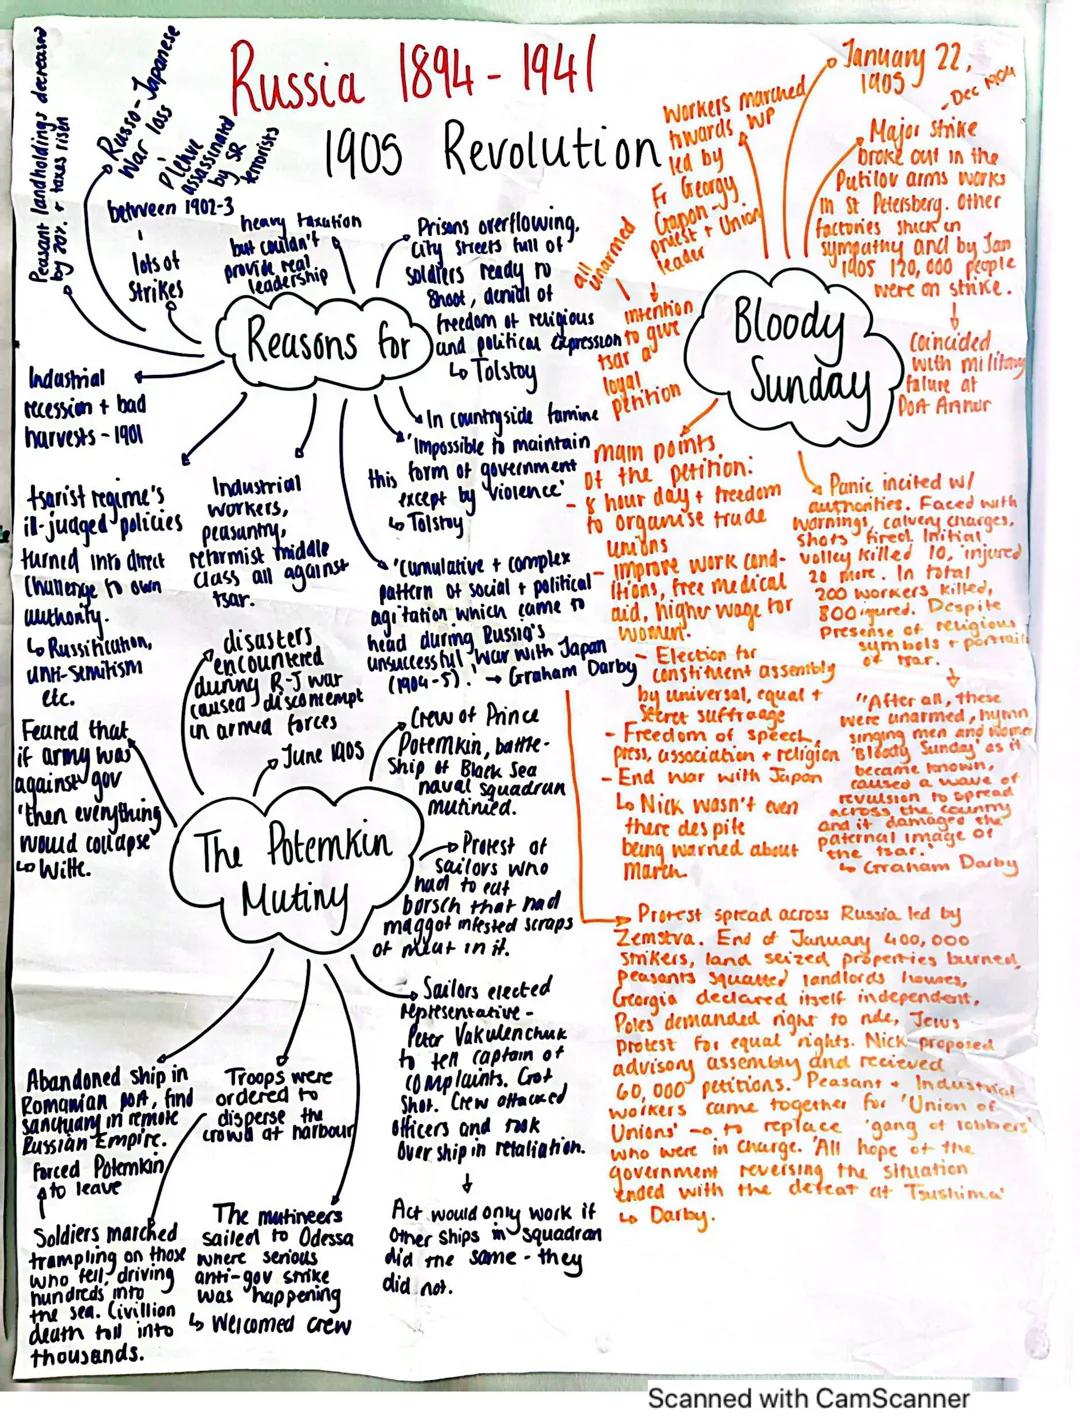 Russia 1894-1941
1905 Revolution
Peasant landholdings decreased
by 20% + taxes risen
Russo-Japanese
War loss
Plehve
assassinated
by SR
terrorists
between 1902-3
lots of
strikes
heavy taxation
but couldn't
provide real
leadership
Prisons overflowing,
City streets full of
soldiers ready to
shoot, denial of
freedom of religious
and political expression
↳ Tolstoy
Reasons for
Industrial
recession + bad
harvests - 1901
In countryside famine
'Impossible to maintain
this form of government
except by violence'
↳ Tolstoy
tsarist regime's
ill-judged policies
turned into direct
challenge to own
authority.
↳ Russification,
anti-semitism
etc.
Industrial
workers,
peasantry,
reformist middle
class all against
tsar.
'Cumulative + complex
pattern of social + political
agitation which came to
head during Russia's
unsuccessful war with Japan
(1904-5).' → Graham Darby
Bloody
Sunday
January 22,
1905
Dec 1904
Major strike
broke out in the
Putilov arms works
in St Petersburg. Other
factories stuck in
sympathy and by Jan
1905 120,000 people
were on strike.
Coincided
with military
failure at
Port Arthur
Workers marched
towards WP
led by
Fr Georgy
Gapon-
priest + Union
leader
all
unarmed
intention
to give
tsar a
loyal
petition
main points
of the petition:
- 8 hour day + freedom
to organise trade
unions
- Improve work cond-
itions, free medical
aid, higher wage for
women.
- Election for
constituent assembly
by universal, equal +
secret suffrage
- Freedom of speech,
press, association + religion
- End war with Japan
↳ Nick wasn't even
there despite
being warned about
march.
Panic incited w/
authorities. Faced with
warnings, calvery charges,
shots fired. Initial
volley killed 10, injured
20 more. In total
200 workers killed,
800 injured. Despite
presense of religious
symbols + portraits
of tsar.
"After all, these
were unarmed, hymn
singing men and women
'Bloody Sunday' as it
became known,
caused a wave of
revulsion to spread
across the country
and it damaged the
paternal image of
the tsar.'
↳ Graham Darby
Protest spread across Russia led by
Zemstva. End of January 400,000
strikers, land seized properties burned,
peasants squatted landlords houses,
Georgia declared itself independent,
Poles demanded right to rule, Jews
protest for equal rights. Nick proposed
advisory assembly and recieved
60,000 petitions. Peasant + Industrial
workers came together for 'Union of
Unions' → to replace 'gang of robbers'
who were in charge. 'All hope of the
government reversing the situation
ended with the defeat at Tsushima'
↳ Darby.
The Potemkin
Mutiny
disasters
encountered
during R-J war
caused discontempt
in armed forces
June 1905
Crew of Prince
Potemkin, battle-
ship of Black Sea
naval squadran
mutinied.
Feared that
if army was
against gov
'then everything
would collapse'
↳ Witte.
Protest of
sailors who
had to eat
borsch that had
maggot infested scraps
of meat in it.
Sailors elected
representative -
Peter Vakulenchuk
to tell captain of
complaints. Got
shot. Crew attacked
officers and took
over ship in retaliation.
Act would only work if
other ships in squadran
did the same - they
did not.
Abandoned ship in
Romanian port, find
sanctuary in remote
Russian Empire.
forced Potemkin
to leave
Troops were
ordered to
disperse the
crowd at harbour
Soldiers marched
trampling on those
who fell, driving
hundreds into
the sea. Civillian
death toll into
thousands.
The mutineers
sailed to Odessa
where serious
anti-gov strike
was happening
↳ Welcomed crew
Scanned with CamScanner